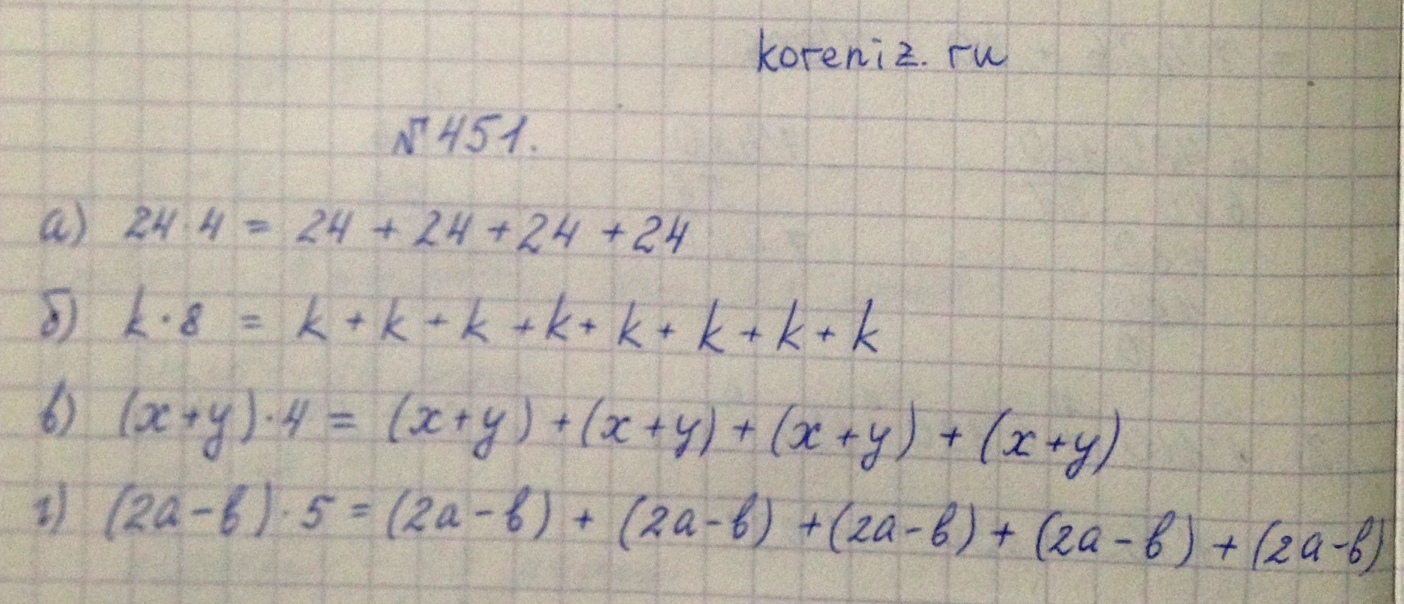 koreniz.ru
№451.
а) 24·4 = 24 + 24 + 24 + 24
б) k·8 = k + k + k + k + k + k + k + k
в) (x+y)·4 = (x+y) + (x+y) + (x+y) + (x+y)
г) (2a-b)·5 = (2a-b) + (2a-b) + (2a-b) + (2a-b) + (2a-b)